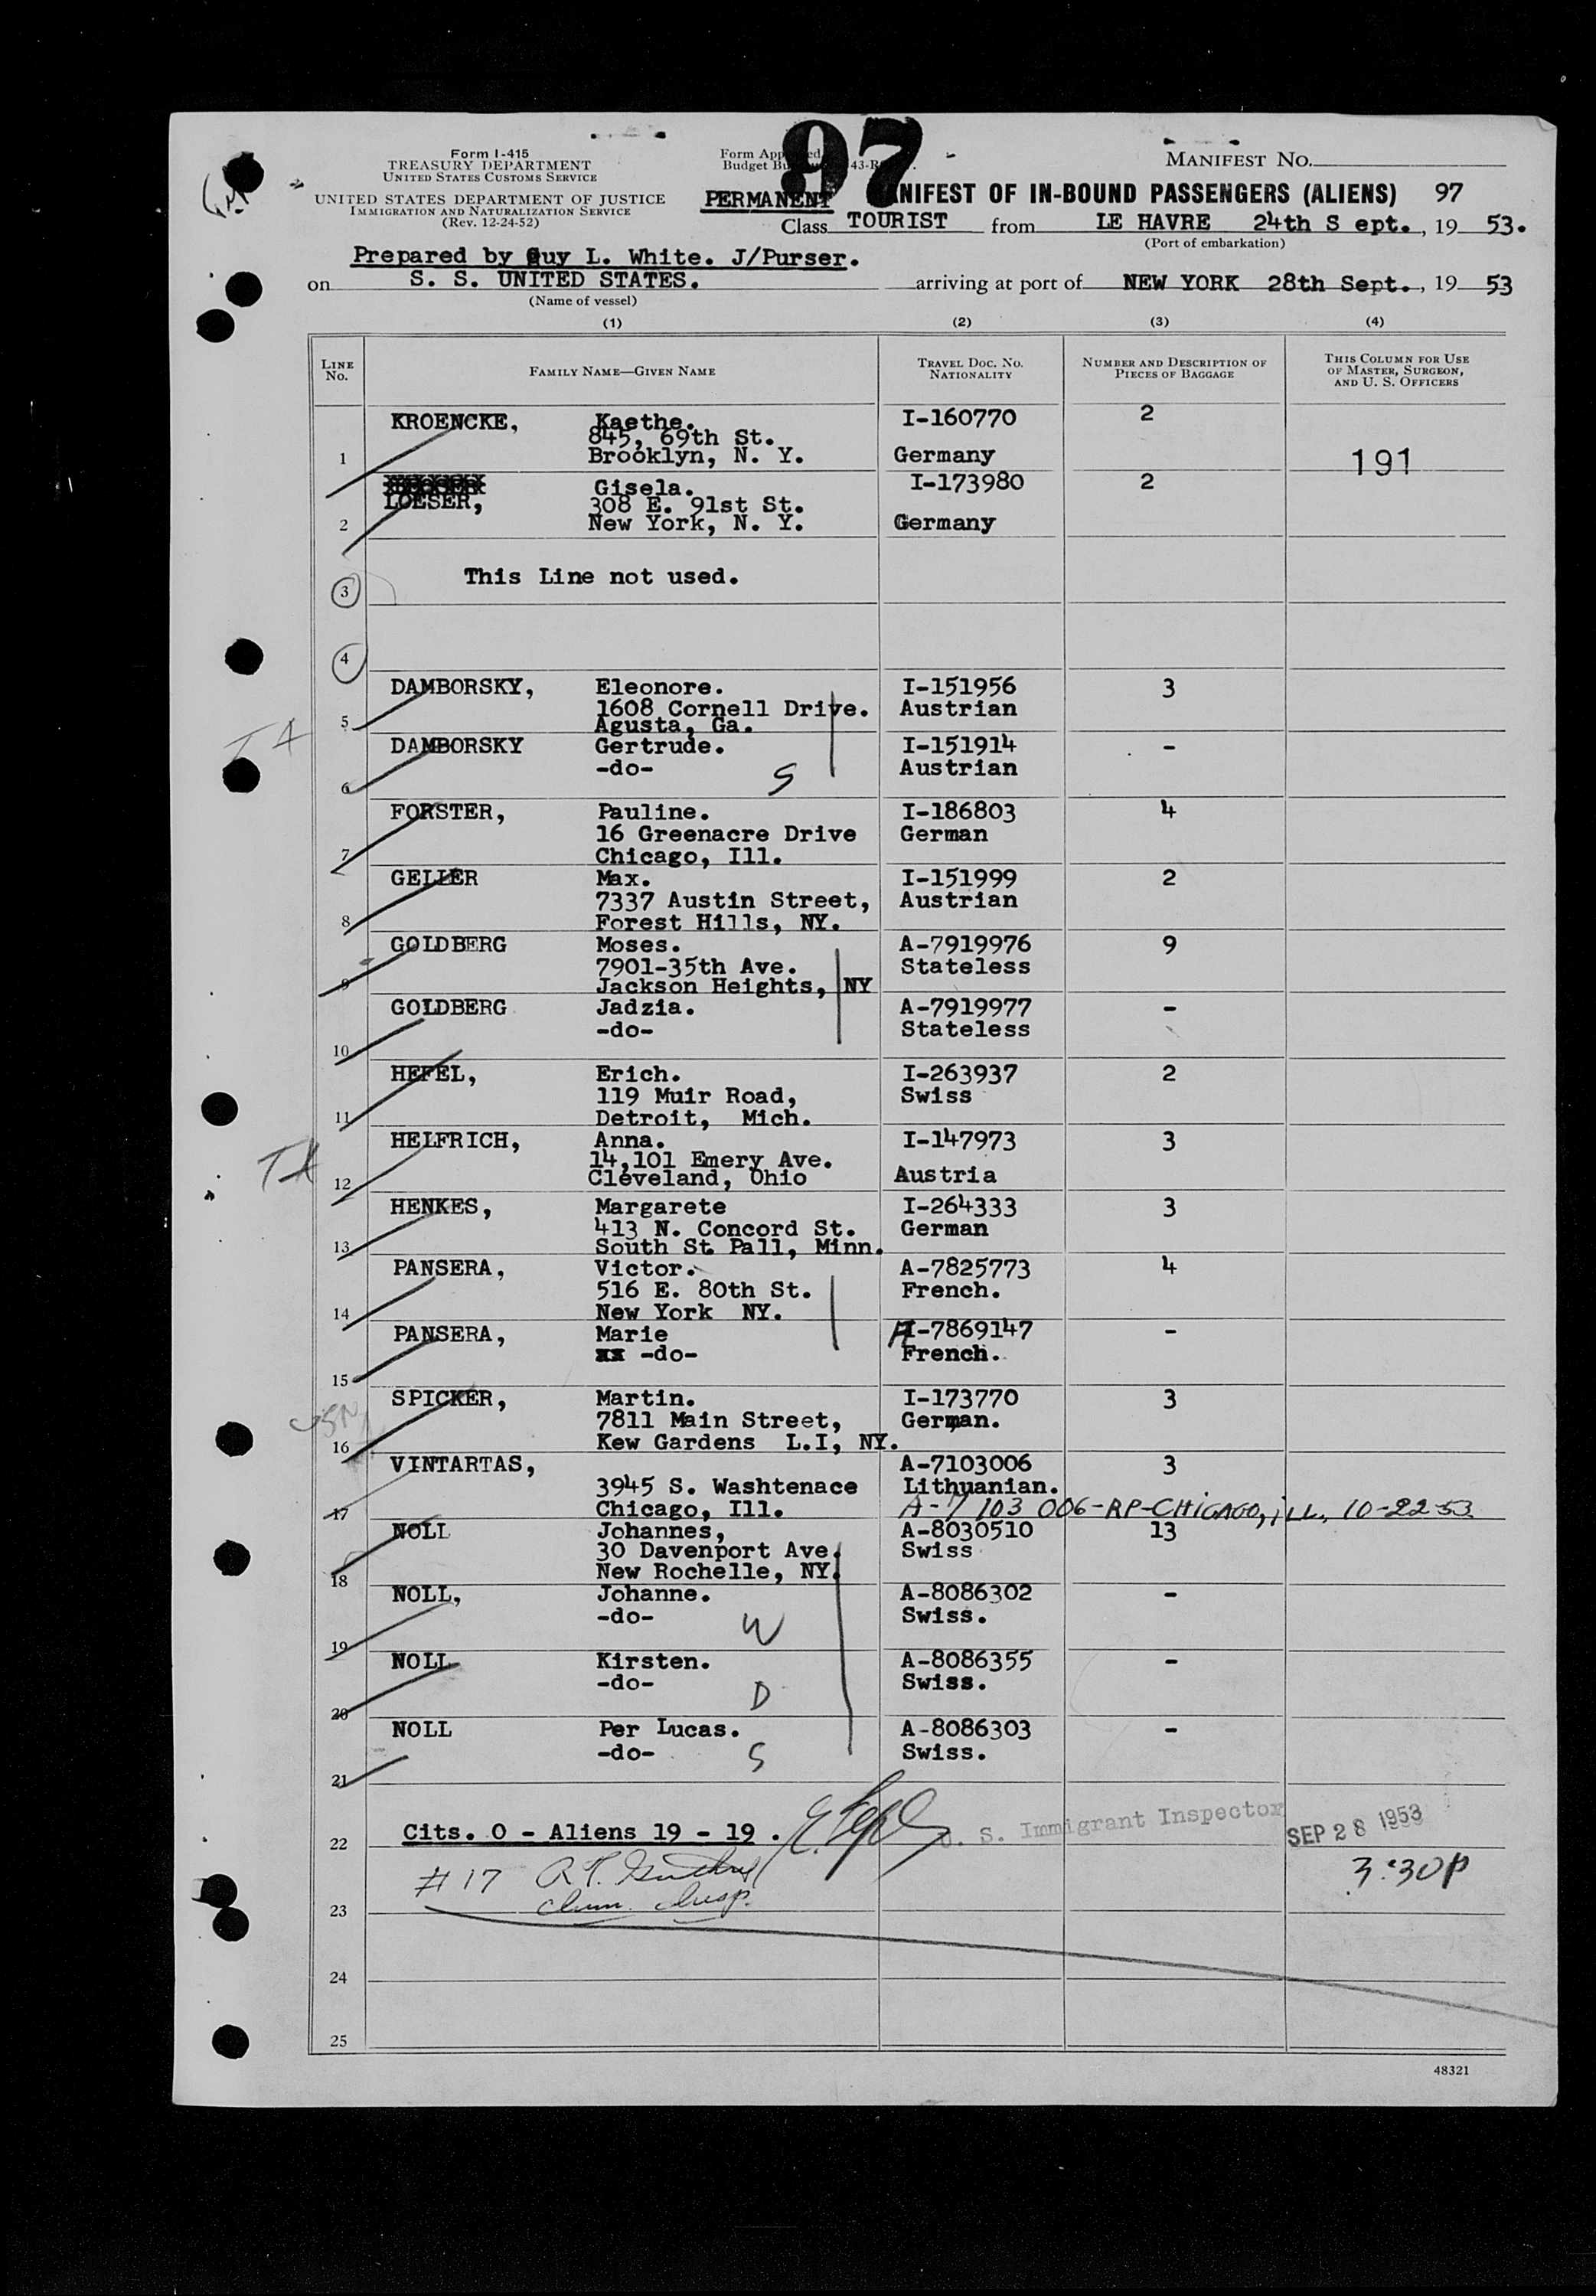 97
Form I-415
TREASURY DEPARTMENT
UNITED STATES CUSTOMS SERVICE
UNITED STATES DEPARTMENT OF JUSTICE
IMMIGRATION AND NATURALIZATION SERVICE
(Rev. 12-24-52)
Form
Budget
MANIFEST NO.
PERMANENT NIFEST OF IN-BOUND PASSENGERS (ALIENS) 97
Class TOURIST from LE HAVRE 24th S ept., 19 53.
(Port of embarkation)
Prepared by Guy L. White. J/Purser.
on S. S. UNITED STATES. arriving at port of NEW YORK 28th Sept., 19 53
(Name of vessel)
(1) (2) (3) (4)
LINE No. FAMILY NAME—GIVEN NAME TRAVEL DOC. NO. NATIONALITY NUMBER AND DESCRIPTION OF PIECES OF BAGGAGE THIS COLUMN FOR USE OF MASTER, SURGEON, AND U. S. OFFICERS
KROENCKE, Kaethe. I-160770 2
845, 69th St.
1 Brooklyn, N. Y. Germany 191
Gisela. I-173980 2
LOESER, 308 E. 91st St.
2 New York, N. Y. Germany
This Line not used.
3
4
DAMBORSKY, Eleonore. I-151956 3
1608 Cornell Drive. Austrian
5 Agusta, Ga.
DAMBORSKY Gertrude. I-151914 -
-do- Austrian
6 S
FORSTER, Pauline. I-186803 4
16 Greenacre Drive German
7 Chicago, Ill.
GELLER Max. I-151999 2
7337 Austin Street, Austrian
8 Forest Hills, NY.
GOLDBERG Moses. A-7919976 9
7901-35th Ave. Stateless
9 Jackson Heights, NY
GOLDBERG Jadzia. A-7919977 -
-do- Stateless
10
HEFEL, Erich. I-263937 2
119 Muir Road, Swiss
11 Detroit, Mich.
HELFRICH, Anna. I-147973 3
14,101 Emery Ave.
12 Cleveland, Ohio Austria
HENKES, Margarete I-264333 3
413 N. Concord St. German
13 South St. Pall, Minn.
PANSERA, Victor. A-7825773 4
516 E. 80th St. French.
14 New York NY.
PANSERA, Marie A-7869147 -
xx -do- French.
15
SPICKER, Martin. I-173770 3
7811 Main Street, German.
16 Kew Gardens L.I, NY.
VINTARTAS, A-7103006 3
3945 S. Washtenace Lithuanian.
17 Chicago, Ill. A-7103 006-RP-CHICAGO, iLL, 10-22-53
NOLL Johannes, A-8030510 13
30 Davenport Ave. Swiss
18 New Rochelle, NY.
NOLL, Johanne. A-8086302 -
-do- Swiss.
19 W
NOLL Kirsten. A-8086355 -
-do- Swiss.
20 D
NOLL Per Lucas. A-8086303 -
-do- Swiss.
21 S
22 Cits. O - Aliens 19 - 19. U. S. Immigrant Inspector SEP 28 1953
#17 3:30P
23
24
25
48321